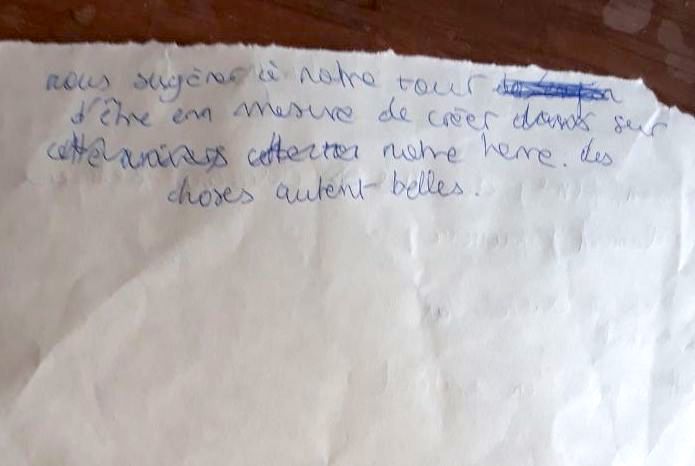 nous sugérer à notre tour
d'être en mesure de créer dans sur
cette univers cette notre terre. des
choses autent belles.